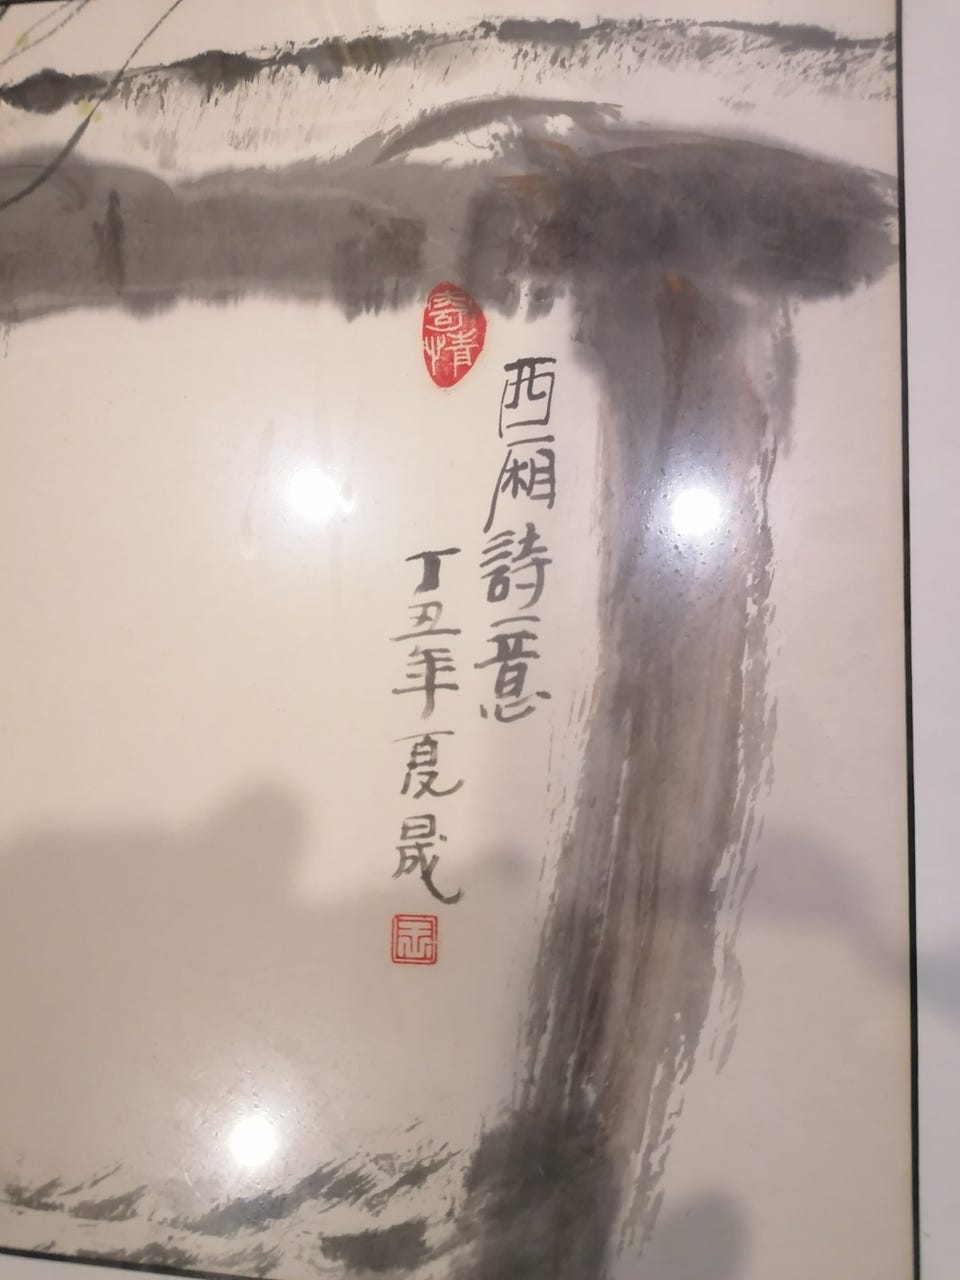 西厢詩意
丁丑年夏晟
寄情